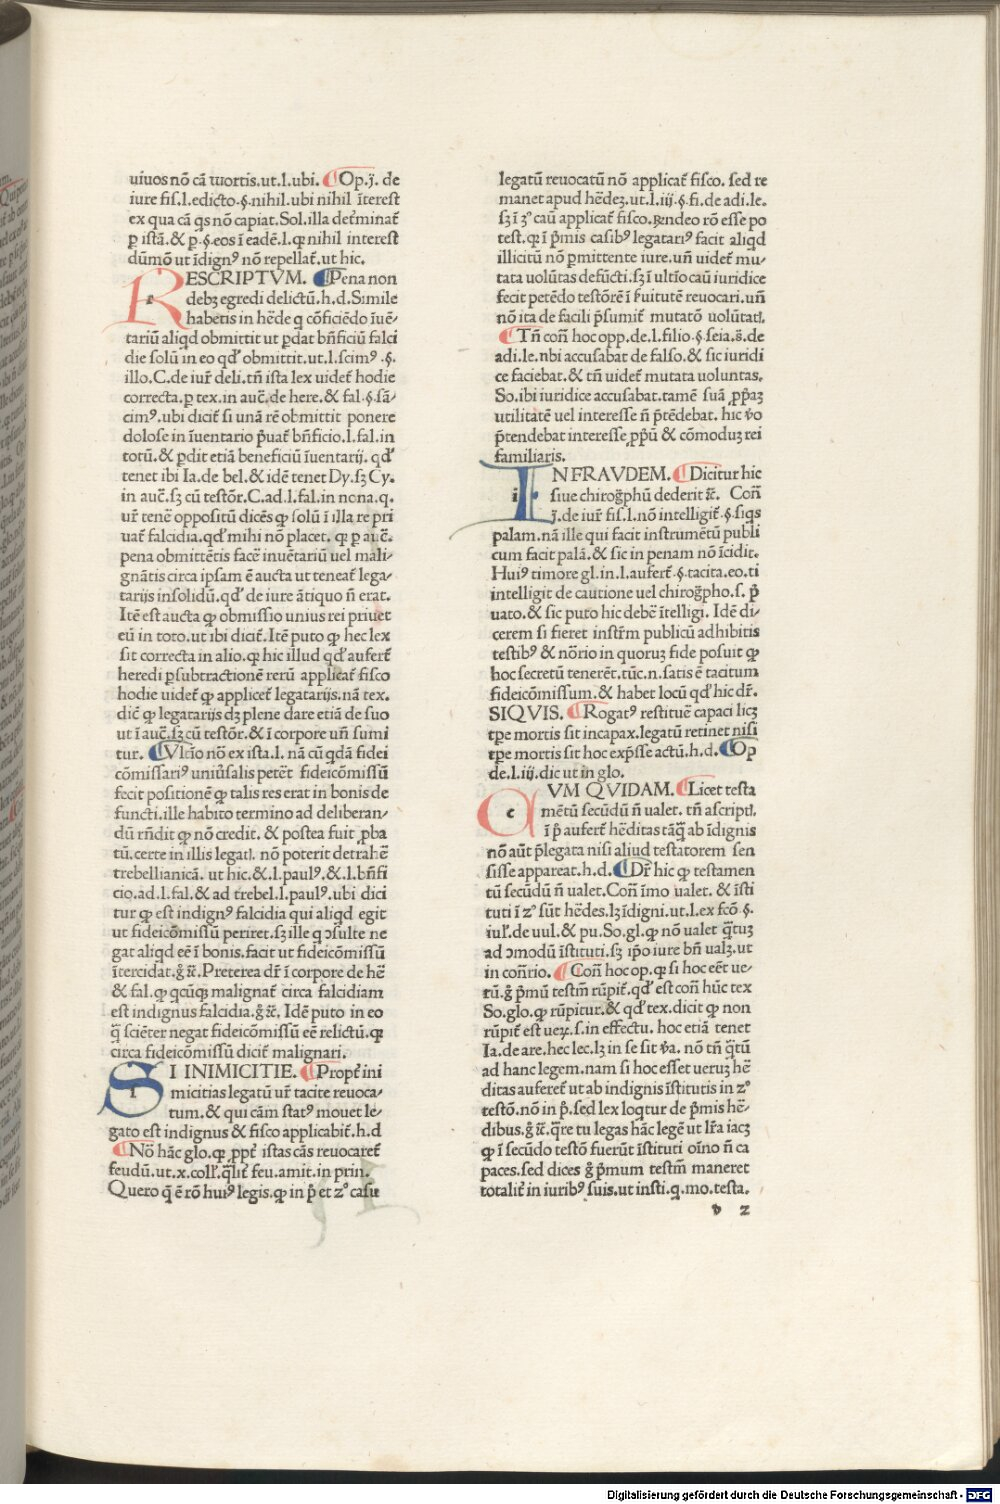 uiuos nõ cã mortis.ut.l.ubi. ¶Op.ĩ. de
iure fis.l.edicto.§.nihil.ubi nihil ĩterest
ex qua cã q̃s nõ capiat. Sol.illa det̃minat̃
ꝑ istã.& ꝑ.§.eos ĩ eadẽ.l.ꝙ nihil interest
dũmõ ut ĩdignꝰ nõ repellat̃.ut hic.
RESCRIPTVM. ¶Pena non
debꝫ egredi delictũ.h.d.Simile
habetis in hẽde q̃ cõficiẽdo ĩuẽ/
tariũ aliqd obmittit ut ꝑdat bñficiũ falci
die solũ in eo qd' obmittit.ut.l.scimꝰ.§.
illo.C.de iur̃ deli.tñ ista lex uidet̃ hodie
correcta.ꝑ tex.in auc̃.de here.& fal.§.sã/
cimꝰ.ubi dicit̃ si unã rẽ obmittit ponere
dolose in ĩuentario p̃uat̃ bñficio.l.fal.in
totũ.& ꝑdit etiã beneficiũ ĩuentarij. qd'
tenet ibi Ia.de bel.& idẽ tenet Dy.sꝫ Cy.
in auc̃.sꝫ cũ testõr.C.ad.l.fal.in nona.q.
ur̃ tenẽ oppositũ dicẽs ꝙ solũ ĩ illa re pri
uat̃ falcidia.qd' mihi nõ placet. ꝙ ꝑ auc̃.
pena obmittẽtis facẽ inuẽtariũ uel mali/
gnãtis circa ipsam ẽ aucta ut teneat̃ lega/
tarijs insolidũ.qd' de iure ãtiquo ñ erat.
Itẽ est aucta ꝙ obmissio unius rei priuet
eũ in toto.ut ibi dicit̃. Itẽ puto ꝙ hec lex
sit correcta in alio.ꝙ hic illud qd' aufert̃
heredi ꝑ subtractionẽ rerũ applicat̃ fisco
hodie uidet̃ ꝙ applicet̃ legatarijs.nã tex.
dic̃ ꝙ legatarijs dꝫ plene dare etiã de suo
ut ĩ auc̃.sꝫ cũ testõr.& ĩ corpore uñ sumi
tur. ¶Vltĩo nõ ex ista.l. nã cũ qdã fidei
cõmissariꝰ uniũsalis petet̃ fideicõmissũ
fecit positionẽ ꝙ talis res erat in bonis de
functi.ille habito termino ad deliberan/
dũ rñdit ꝙ nõ credit. & postea fuit ꝓba
tũ.certe in illis legatꝭ. nõ poterit detrahẽ
trebellianicã. ut hic.&.l.paulꝰ.&.l.bñfi
cio.ad.l.fal.& ad trebel.l.paulꝰ.ubi dici
tur ꝙ est indignꝰ falcidia qui aliqd egit
ut fideicõmissũ periret.sꝫ ille q ↄsulte ne
gat aliqd eẽ ĩ bonis.facit ut fideicõmissũ
ĩtercidat.g̃ ⁊c̃.Preterea dr̃ ĩ corpore de hẽ
& fal.ꝙ qcũqꝫ malignat̃ circa falcidiam
est indignus falcidia.g̃ ⁊c̃. Idẽ puto in eo
q̃ sciẽter negat fideicõmissũ eẽ relictũ.ꝙ
circa fideicõmissũ dicit̃ malignari.
SI INIMICITIE. ¶Propt̃ ini
micitias legatũ ur̃ tacite reuoca/
tum.& qui cãm statꝰ mouet le/
gato est indignus & fisco applicabit̃.h.d
¶Nõ hãc glo.ꝙ ꝓpt̃ istas cãs reuocaret̃
feudũ.ut.x.coll'.q̃lit̃ feu.amit.in prin.
Quero q̃ ẽ rõ huiꝰ legis.ꝙ in p̃ et zº casu
legatũ reuocatũ nõ applicat̃ fisco. sed re
manet apud hẽdeꝫ.ut.l.iij.§.fi.de adi.le.
sꝫ ĩ ʒº caũ applicat̃ fisco.ꝶndeo rõ esse po
test.ꝙ ĩ p̃mis casibꝰ legatariꝰ facit aliqd
illicitũ nõ ꝑmittente iure.uñ uidet̃ mu/
tata uolũtas defũcti.sꝫ ĩ ultĩo caũ iuridice
fecit petẽdo testõrẽ ĩ ẜuitutẽ reuocari.uñ
nõ ita de facili p̃sumit̃ mutatõ uolũtatꝭ.
¶Tñ coñ hoc opp.de.l.filio.§.seia.s̃.de
adi.le.nbi accusabat de falso.& sic iuridi
ce faciebat.& tñ uidet̃ mutata uoluntas.
So.ibi iuridice accusabat.tamẽ suã ꝓpaꝫ
utilitatẽ uel interesse ñ p̃tẽdebat. hic ỽo
p̃tendebat interesse ꝓpũ & cõmoduꝫ rei
familiaris.
IN FRAVDEM. ¶Dicitur hic
siue chirog̃phũ dederit ⁊c̃. Coñ
ĩ.de iur̃ fis.l.nõ intelligit̃.§.siqs
palam.nã ille qui facit instrumẽtũ publi
cum facit palã.& sic in penam nõ ĩcidit.
Huiꝰ timore gl.in.l.aufert̃.§.tacita.eo.ti
intelligit de cautione uel chirog̃pho.s. p̃
uato.& sic puto hic debẽ ĩtelligi. Idẽ di/
cerem si fieret instr̃m publicũ adhibitis
testibꝰ & nõrio in quoruꝫ fide posuit ꝙ
hoc secretũ tenerẽt.tũc.n.satis ẽ tacitum
fideicõmissum.& habet locũ qd' hic dr̃.
SIQVIS. ¶Rogatꝰ restituẽ capaci licꝫ
tꝑe mortis sit incapax.legatũ retinet nisi
tꝑe mortis sit hoc exp̃sse actũ.h.d. ¶Op
de.l.iij.dic ut in glo.
CVM QVIDAM. ¶Licet testa
mẽtũ secũdũ ñ ualet. tñ ascriptꝭ.
ĩ p̃ aufert̃ hẽditas tãq̃ ab ĩdignis
nõ aũt p̃legata nisi aliud testatorem sen
sisse appareat.h.d. ¶Dr̃ hic ꝙ testamen
tũ secũdũ ñ ualet.Coñ ĩmo ualet. & ĩsti
tuti ĩ zº sũt hẽdes.lꝫ ĩdigni.ut.l.ex fcõ.§.
iul'.de uul.& pu.So.gl.ꝙ nõ ualet q̃tuꝫ
ad ↄmodũ ĩstituti.sꝫ ip̃o iure bñ ualꝫ.ut
in coñrio. ¶Coñ hoc op.ꝙ si hoc eẽt ue/
rũ.g̃ p̃mũ testm̃ rũpit̃.qd' est coñ hũc tex
So.glo.ꝙ rũpitur.& qd' tex.dicit ꝙ non
rũpit̃ est ueꝝ.s.in effectu. hoc etiã tenet
Ia.de are.hec lec.lꝫ in se sit ỽa. nõ tñ q̃tũ
ad hanc legem.nam si hoc esset ueruꝫ hẽ
ditas auferet̃ ut ab indignis ĩstitutis in zº
testõ.nõ in p̃.sed lex loqtur de p̃mis hẽ/
dibus.g̃ ⁊c̃.q̃re tu legas hãc legẽ ut lr̃a iacꝫ
ꝙ ĩ secũdo testõ fuerũt ĩstituti oĩno ñ ca
paces.sed dices g̃ p̃mum testm̃ maneret
totalit̃ in iuribꝰ suis.ut insti.q.mo.testa.
v 2
Digitalisierung gefördert durch die Deutsche Forschungsgemeinschaft - DFG